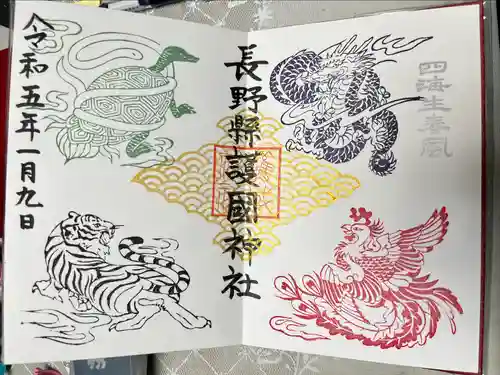 四海生春風
長野縣護國神社
令和五年一月九日